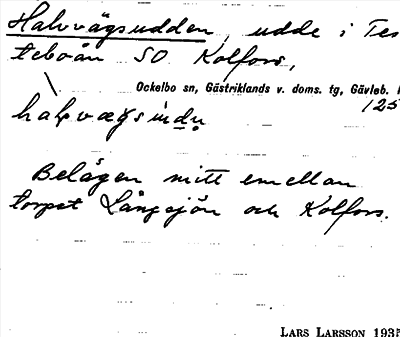 Halvvägsudden, udde i Tes
teboån SO Kolfors,
Ockelbo sn, Gästriklands v. doms. tg, Gävleb. l
125
Belägen mitt emellan
torpet Långsjön och Kolfors.
LARS LARSSON 1935